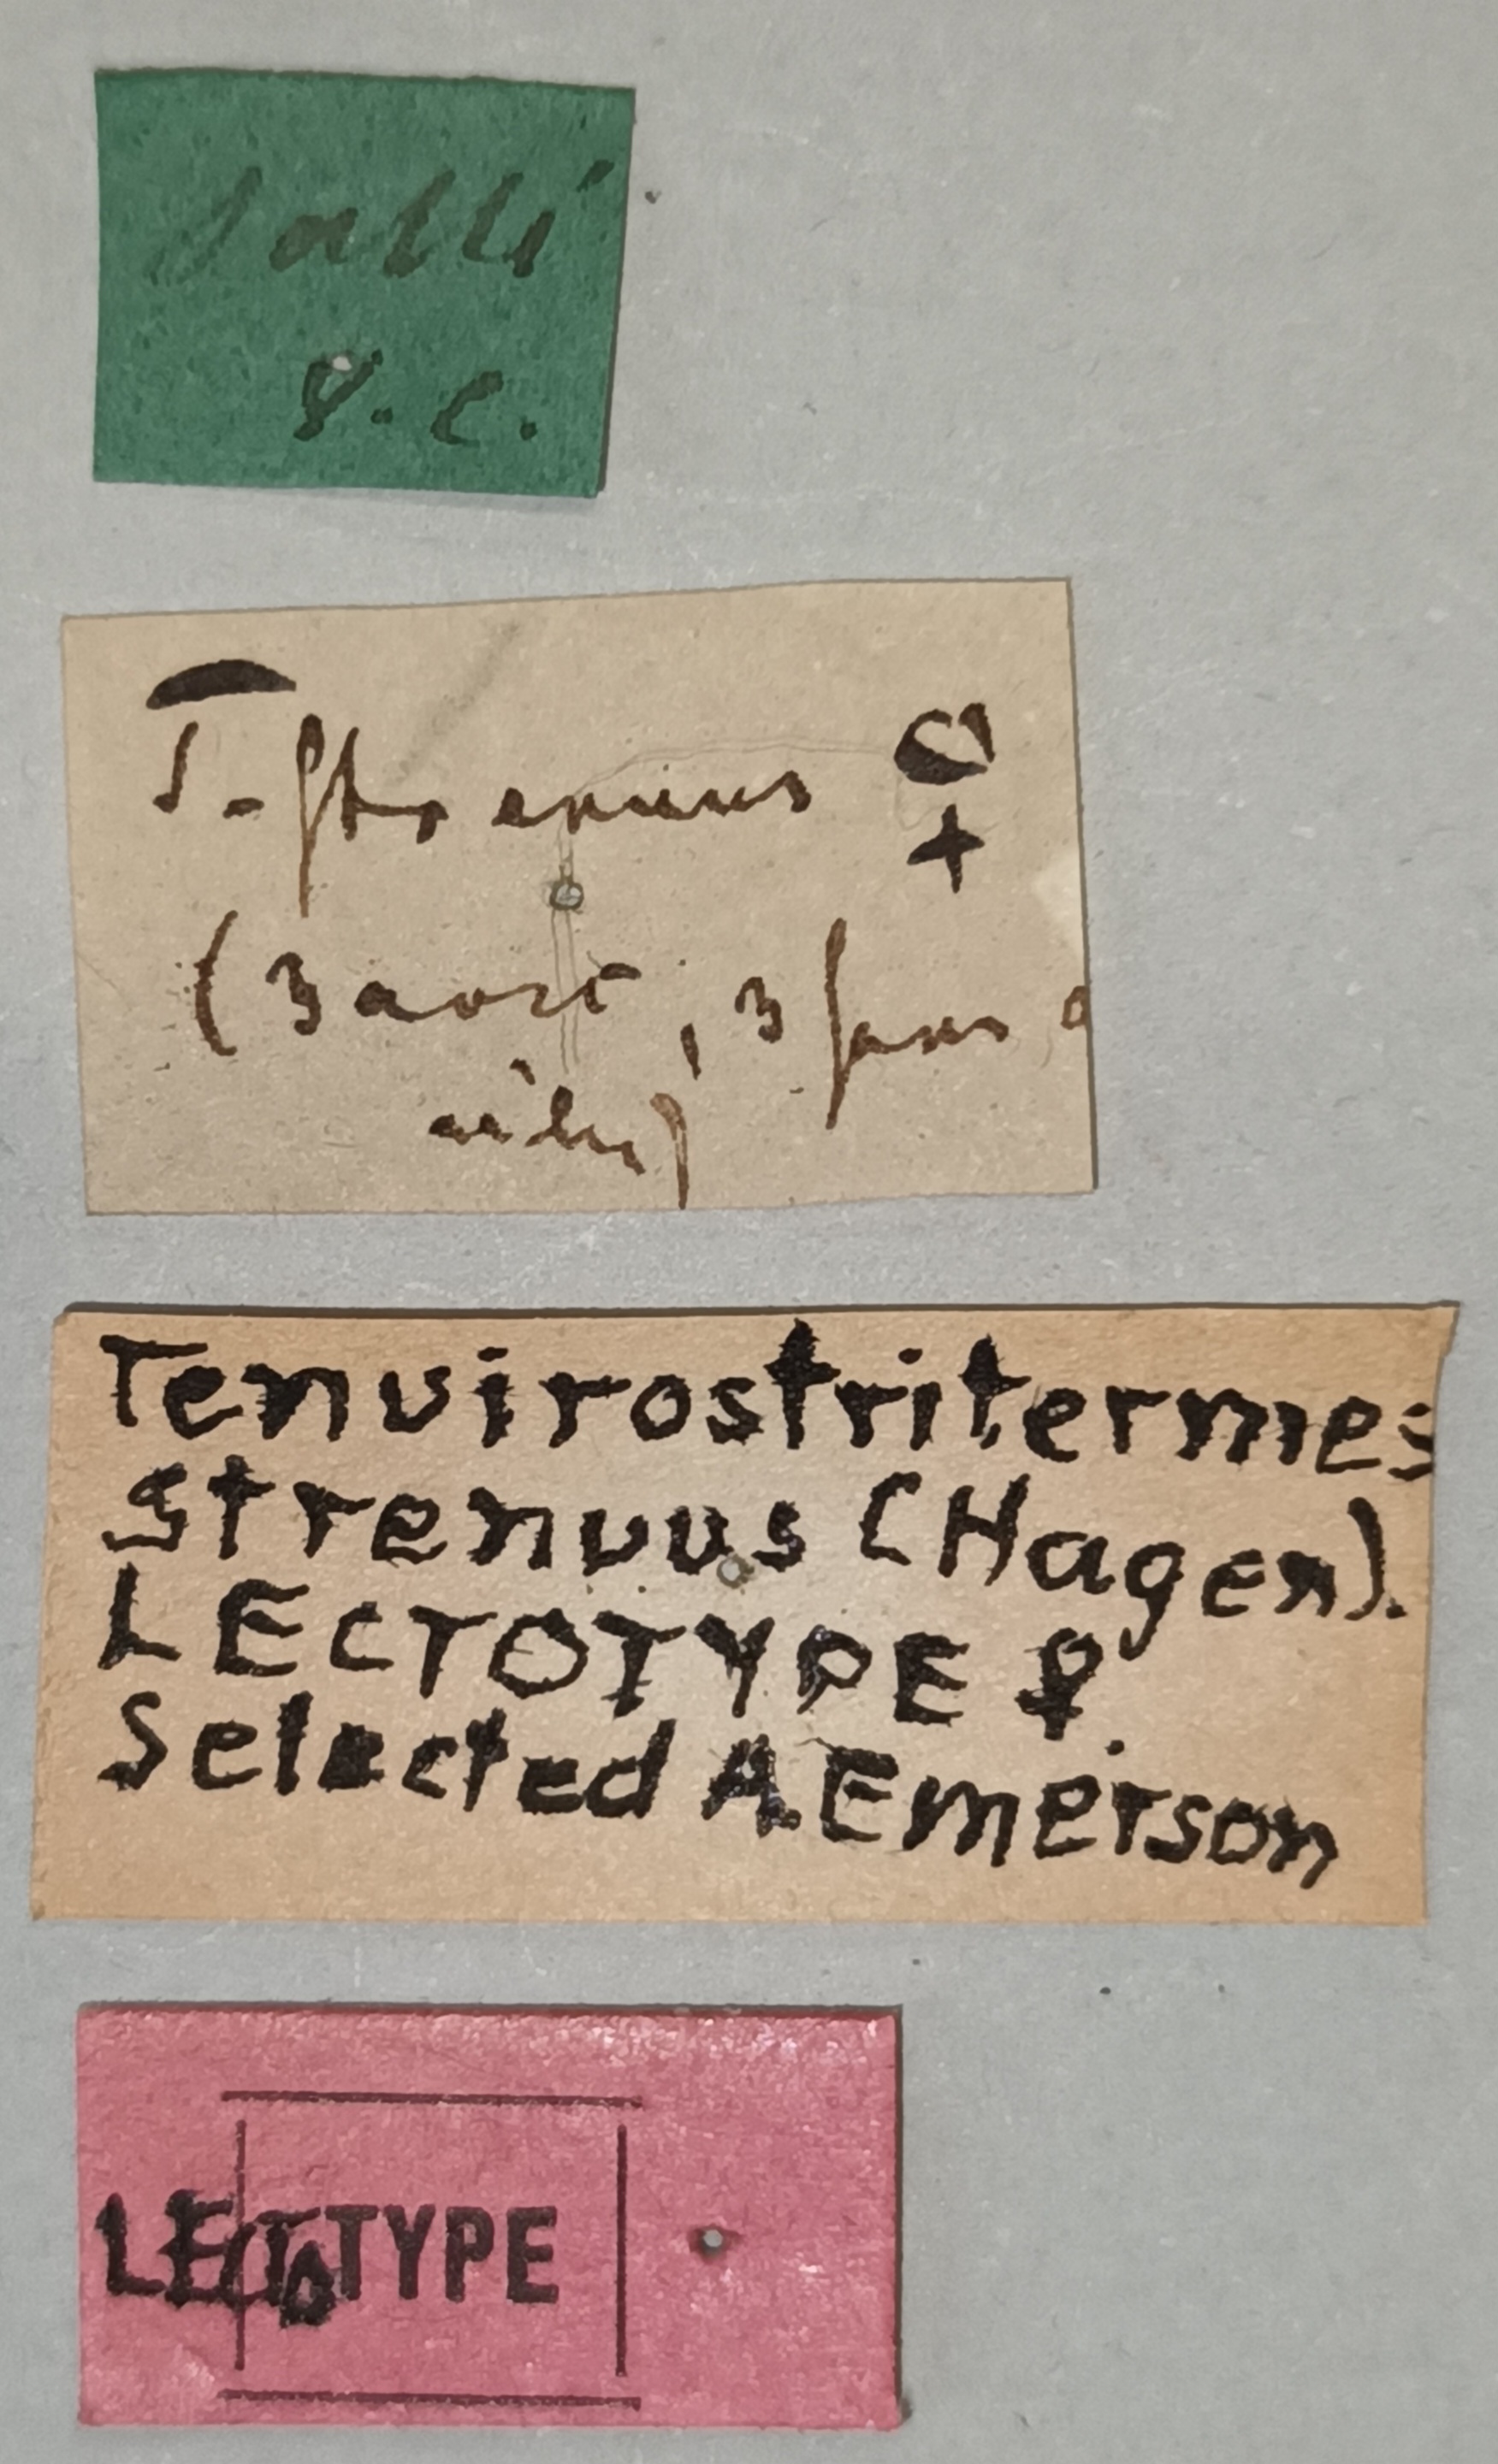 Sallé
T. strenuus ♀
(3 avec, 3 sans
ailes)
Tenuirostritermes
strenuus (Hagen).
LECTOTYPE ♀.
Selected AEmerson
LECTOTYPE